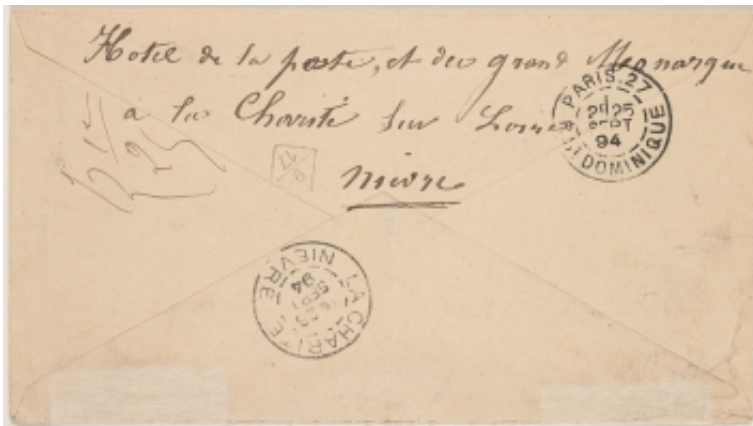 Hotel de la poste, et du grand Monarque
a la Charité sur Loire
Nievre
PARIS. 27
25
SEPT
94
R. ST DOMINIQUE
LA CHARITE
SEPT
94
NIEVRE